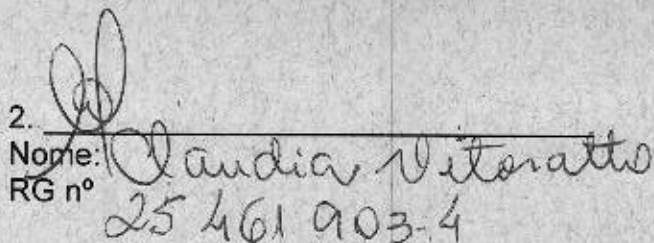 2.
Nome: Claudia Vitoratto
RG nº
25 461 903-4